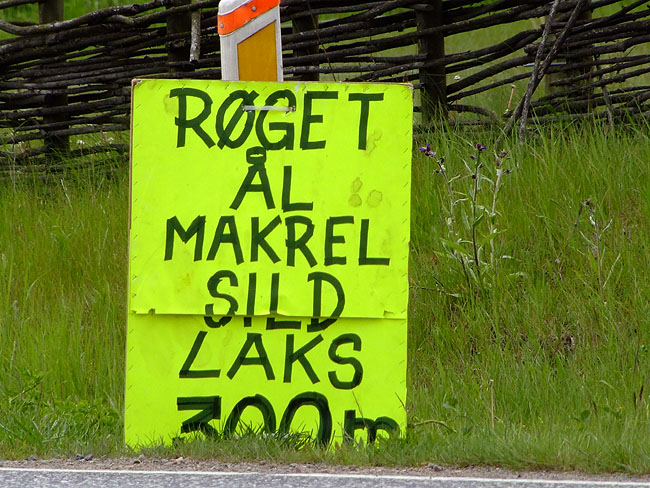 RØGET
ÅL
MAKREL
SILD
LAKS
300m